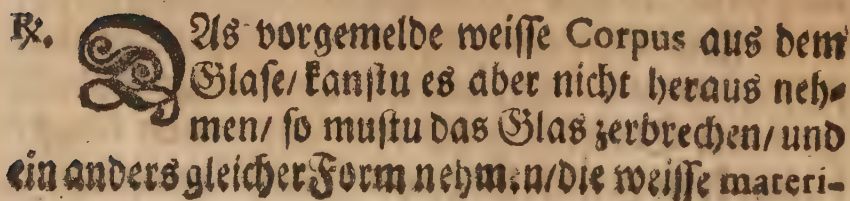 ℞. DAs vorgemelde weisse Corpus aus dem
Glase/ kanstu es aber nicht heraus neh-
men/ so mustu das Glas zerbrechen/ und
ein anders gleicher Form nehmen/ die weisse materi-